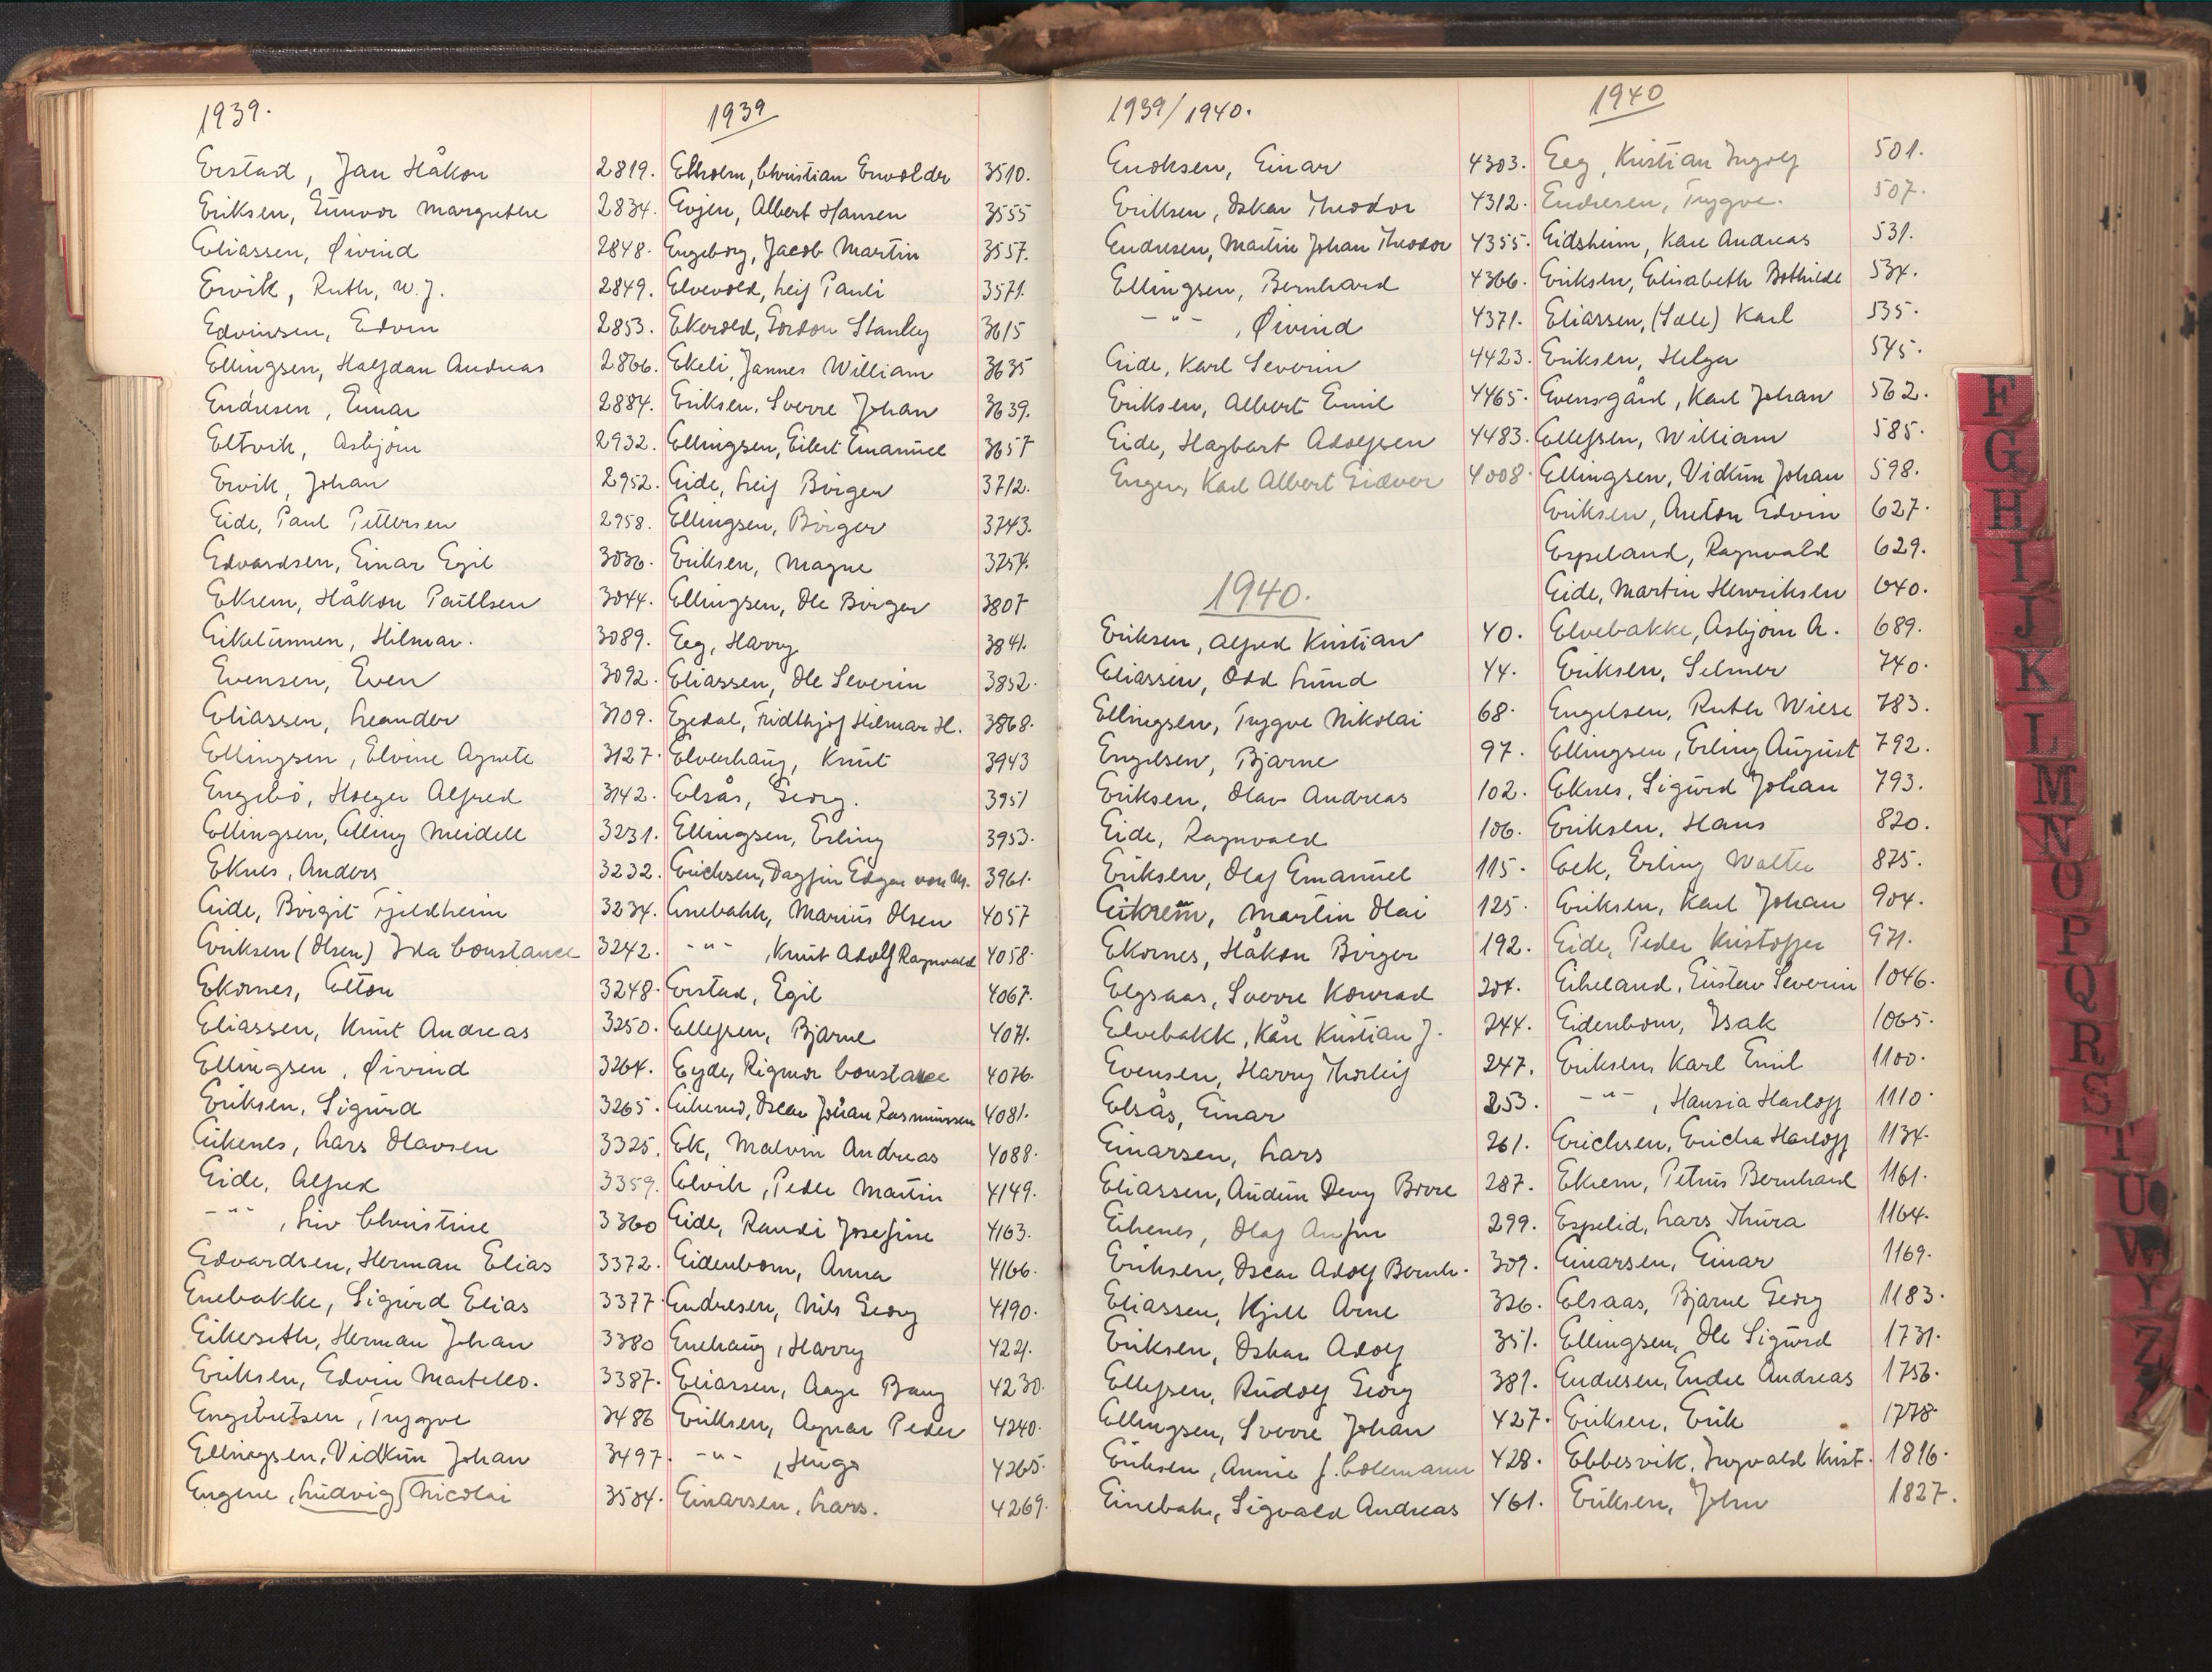 1939.
Erstad, Jan Håkon 2819.
Eriksen, Gunvor Margrethe 2834.
Eliassen, Øivind 2848.
Ervik, Ruth, W. J. 2849.
Edvinsen, Edvin 2853.
Ellingsen, Halfdan Andreas 2866.
Endresen, Einar 2884.
Eltvik, Asbjørn 2932.
Ervik, Johan 2952.
Eide, Paul Pettersen 2958.
Edvardsen, Einar Egil 3036.
Ekrem, Håkon Paulsen 3044.
Eiketunnen, Hilmar. 3089.
Evensen, Even 3092.
Eliassen, Leander 3109.
Ellingsen, Elvine Agnete 3127.
Engebø, Holger Alfred 3142.
Ellingsen, Elling Meidell 3231.
Eknes, Anders 3232.
Eide, Birgit Fjeldheim 3234.
Eriksen (Olsen) Ida Constance 3242.
Ekornes, Elton 3248.
Eliassen, Knut Andreas 3250.
Ellingsen, Øivind 3264.
Eriksen, Sigurd 3265.
Eikenes, Lars Olavsen 3325.
Eide, Alfred 3359.
-"- , Liv Christine 3360
Edvardsen, Herman Elias 3372.
Enebakke, Sigurd Elias 3377.
Eikeseth, Herman Johan 3380
Eriksen, Edvin Martello. 3387.
Engebretsen, Trygve 3486
Ellingsen, Vidkun Johan 3497.
Engene, Ludvig Nicolai 3504.
1939
Ekholm, Christian 3510.
Evjen, Albert Hansen 3555
Engeborg, Jacob Martin 3557.
Elvevold, Leif Pauli 3571.
Ekerold, Gordon Stanley 3615
Ekeli, Jannes William 3635
Eriksen, Sverre Johan 3639.
Ellingsen, Eilert Emanuel 3657
Eide, Leif Birger 3712.
Ellingsen, Birger 3743.
Eriksen, Magne 3254.
Ellingsen, Ole Birger 3807
Eeg, Harry 3841.
Eliassen, Ole Severin 3852.
Egedal, Fridthjof Hilmar H. 3868.
Elverhaug, Knut 3943
Elsås, Georg. 3951
Ellingsen, Erling 3953.
Erichsen, Dagfin Edgar von M. 3961.
Enebakk, Marius Olsen 4057
-"- , Knut Adolf Ragnvald 4058.
Erstad, Egil 4067.
Ellefsen, Bjarne 4071.
Eyde, Rigmor Constance 4076.
Oscar Johan Rasmussen 4081.
Ek, Malvin Andreas 4088.
Elvik, Peder Martin 4149.
Eide, Randi Josefine 4163.
Eidenbom, Anna 4166.
Endresen, Nils Georg 4190.
Enehaug, Harry 4221.
Eliassen, Aage Bang 4230.
Eriksen, Agnar Peder 4240.
-"- , Hugo 4265.
Einarsen, Lars. 4269.
1939/1940.
Enoksen, Einar 4303.
Eriksen, Oskar Theodor 4312.
Endresen, Martin Johan Theodor 4355.
Ellingsen, Bernhard 4366.
-"- , Øivind 4371.
Eide, Karl Severin 4423.
Eriksen, Albert Emil 4465.
Eide, Hagbart Adolfsen 4483.
Engen, Karl Albert Gidver 4008.
1940.
Eriksen, Alfred Kristian 40.
Eliassen, Odd Lund 44.
Ellingsen, Trygve Nikolai 68.
Engelsen, Bjarne 97.
Eriksen, Olav Andreas 102.
Eide, Ragnvald 106.
Eriksen, Olaf Emanuel 115.
Eikrem, Martin Olai 125.
Ekornes, Håkon Birger 192.
Elgsaas, Sverre Konrad 204.
Elvebakk, Kåre Kristian J. 244.
Evensen, Harry Thorleif 247.
Elsås, Einar 253.
Einarsen, Lars 261.
Eliassen, Audun Devy Bovre 287.
Eikenes, Olaf Anfin 299.
Eriksen, Oscar Adolf Bernh. 309.
Eliassen, Kjell Arne 326.
Eriksen, Oskar Adolf 351.
Ellefsen, Rudolf Georg 381.
Ellingsen, Sverre Johan 427.
Eriksen, Annie f. Colemann 428.
Einebakk, Sigvald Andreas 461.
1940
Eeg, Kristian Ingolf 501.
Endresen, Trygve. 507.
Eidsheim, Kåre Andreas 531.
Eriksen, Elisabeth Bothilde 534.
Eliassen, (Sæle) Karl 535.
Eriksen, Helga 545.
Evensgård, Karl Johan 562.
Ellefsen, William 585.
Ellingsen, Vidkun Johan 598.
Eriksen, Anton Edvin 627.
Espeland, Ragnvald 629.
Eide, Martin Henriksen 640.
Elvebakke, Asbjørn A. 689.
Eriksen, Selmer 740.
Engelsen, Ruth Wiese 783.
Ellingsen, Erling August 792.
Eknes, Sigurd Johan 793.
Eriksen, Hans 820.
Eek, Erling Walter 875.
Eriksen, Karl Johan 904.
Eide, Peder Kristoffer 971.
Eikeland, Gustav Severin 1046.
Eidenbom, Isak 1065.
Eriksen, Karl Emil 1100.
-"- , Hansia Harloff 1110.
Erichsen, Ericha Harloff 1134.
Ekrem, Petrus Bernhard 1161.
Espelid, Lars Thura 1164.
Einarsen, Einar 1169.
Elsaas, Bjarne Georg 1183.
Ellingsen, Ole Sigurd 1731.
Endresen, Endre Andreas 1756.
Eriksen, Erik 1778
Ebbesvik, Ingvald Krist. 1816.
Eriksen, John 1827.
F
G
H
I
J
K
L
M
N
O
P
Q
R
S
T
U
W
Y
Z